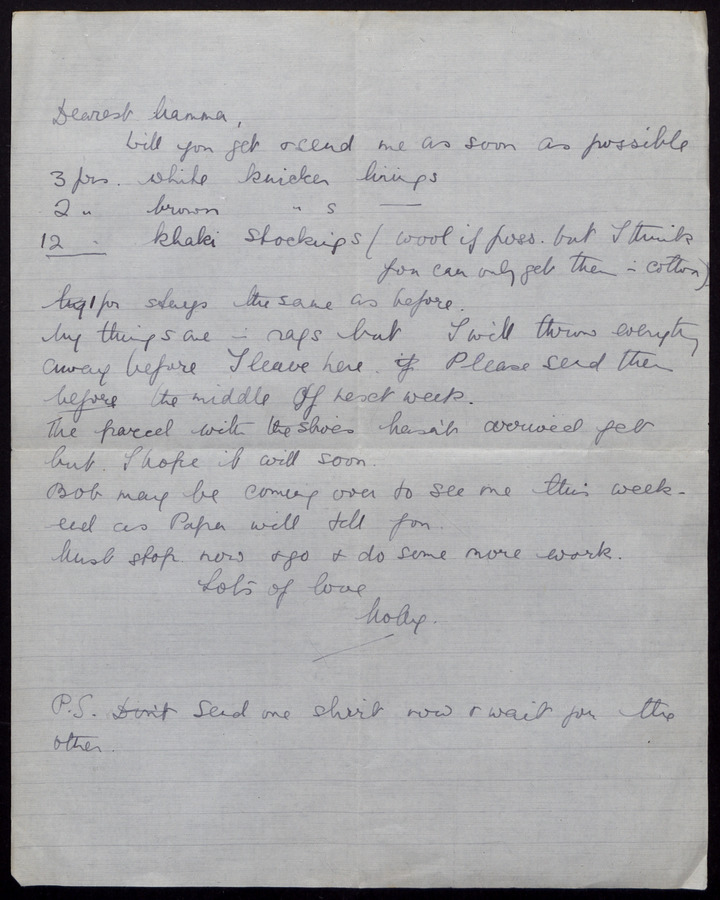 Dearest Mamma,
Will you get & send me as soon as possible
3 prs. white knicker linings
2 " brown " s —
12 " khaki stockings (wool if poss. but I think
you can only get them in cotton)
1 pr stays the same as before.
My things are in rags but I will throw everything
away before I leave here. Please send them
before the middle of next week.
The parcel with the shoes hasn't arrived yet
but I hope it will soon.
Bob may be coming over to see me this week-
end as Papa will tell you.
Must stop now & go & do some more work.
Lots of love
P.S. Don't Send one shirt now & wait for the
other.